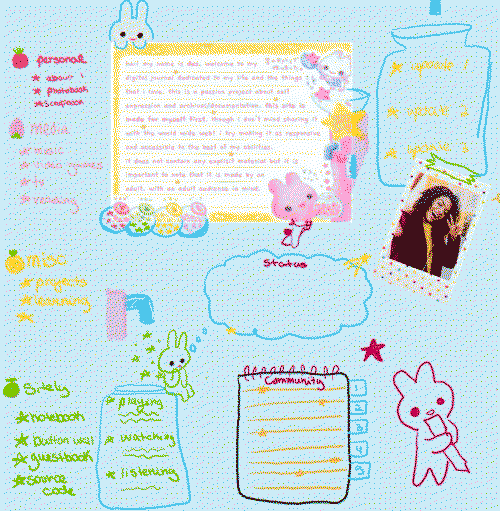 personal
about
photobook
scrapbook
media
music
video games
tv
reading
misc
projects
learning
sitely
notebook
button wall
guestbook
source
code
hai! my name is dee. welcome to my
digital journal dedicated to my life and the things
that i love. this is a passion project about self
expression and archives/documentation. this site is
made for myself first, though i don't mind sharing it
with the world wide web! i try making it as responsive
and accessible to the best of my abilities.
it does not contain any explicit material but it is
important to note that it is made by an
adult, with an adult audience in mind.
update 1
update 2
update 3
Status
playing
watching
listening
Community
1
2
3
4
5